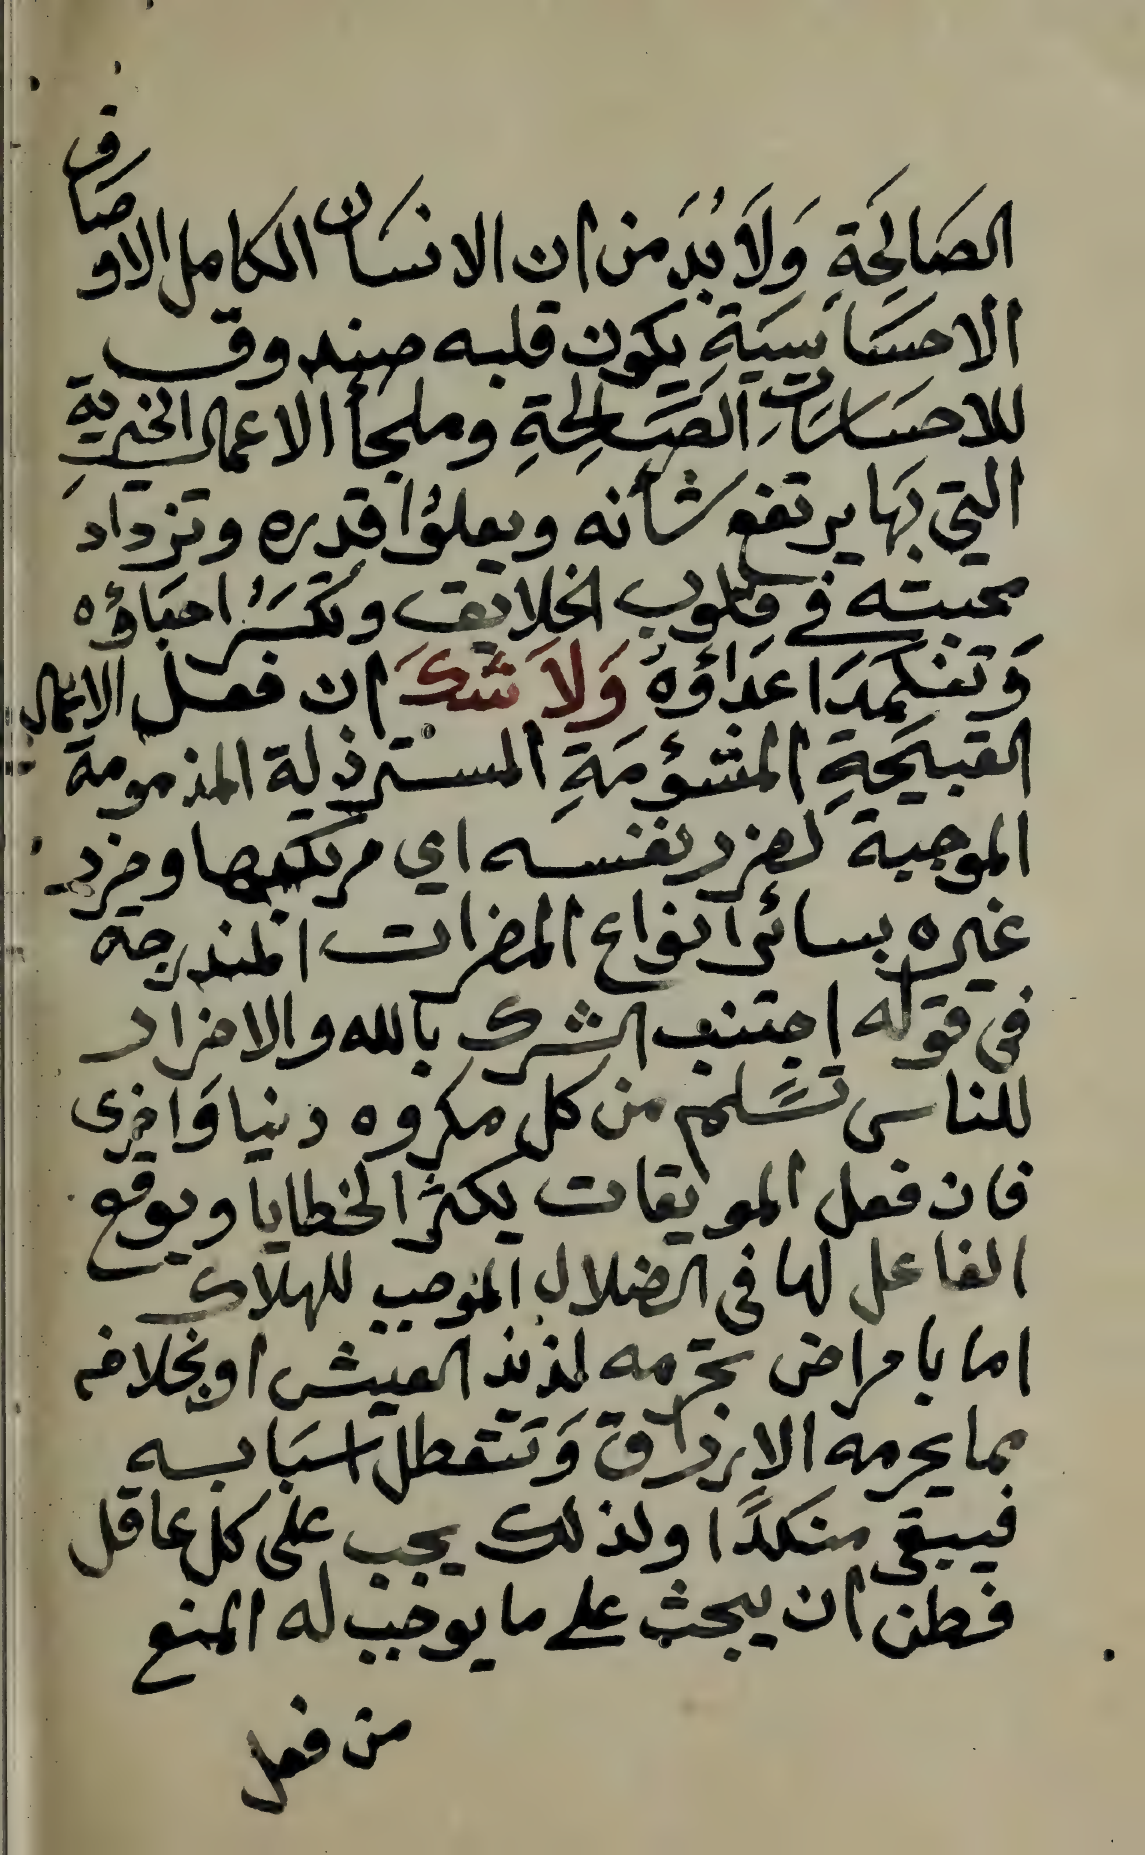 الصَالِحَةِ وَلَا بُدَ من ان الانسَان الكامل الاوصَاف
الاحسَاسِيَةِ يكون قلبه صندوق
للاحسَاسَاتِ الصَالِحَةِ وملجأ الاعمال الخيرية
التي بَها يرتفع شأنه ويعلوُا قدره وتزداد
محبته في قلوب الخلايق وتكثَرُ احبَاؤه
وَتنكمدَ اعدَاؤهُ وَلاَ شَكَ ان فعل الاعمال
القبيحَةِ المشؤمَةِ المسترذلة المذمومة
الموجبة لضرر نفسه اي مرتكبها وضرر
غيره بسائر انواع المضرات المندرجة
في قوله اجتنب الشرك بالله والاضرار
للناس تسَلم من كل مكروه دنيا وَاخرى
فان فعل الموبقات يكثر الخطايا ويوقع
الفاعل لها في الضلال الموجب للهلاك
اما بامراض تحرمه لذيذ العيش او بخلافه
مما يحرمه الارزاق وَتتعطل اسبَابه
فيبقى منكدًا ولذلك يجب على كل عاقل
فطن ان يبحث على ما يوجب له المنع
من فعل